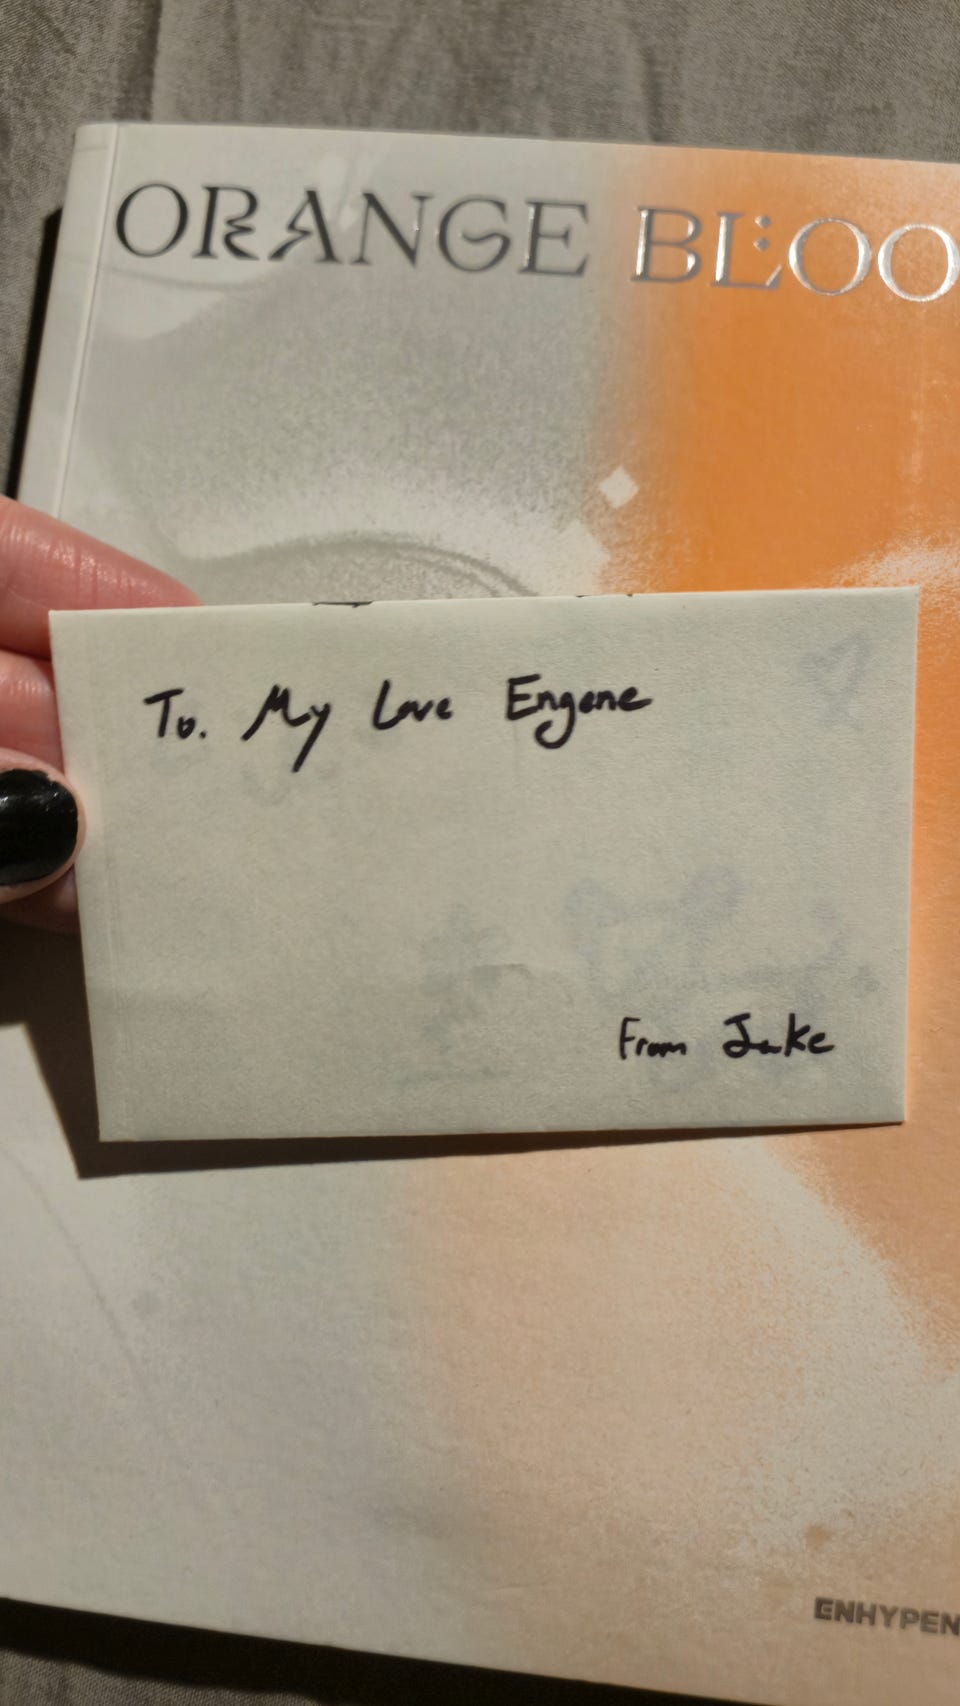 ORANGE BLOO
To. My Love Engene
From Jake
ENHYPEN